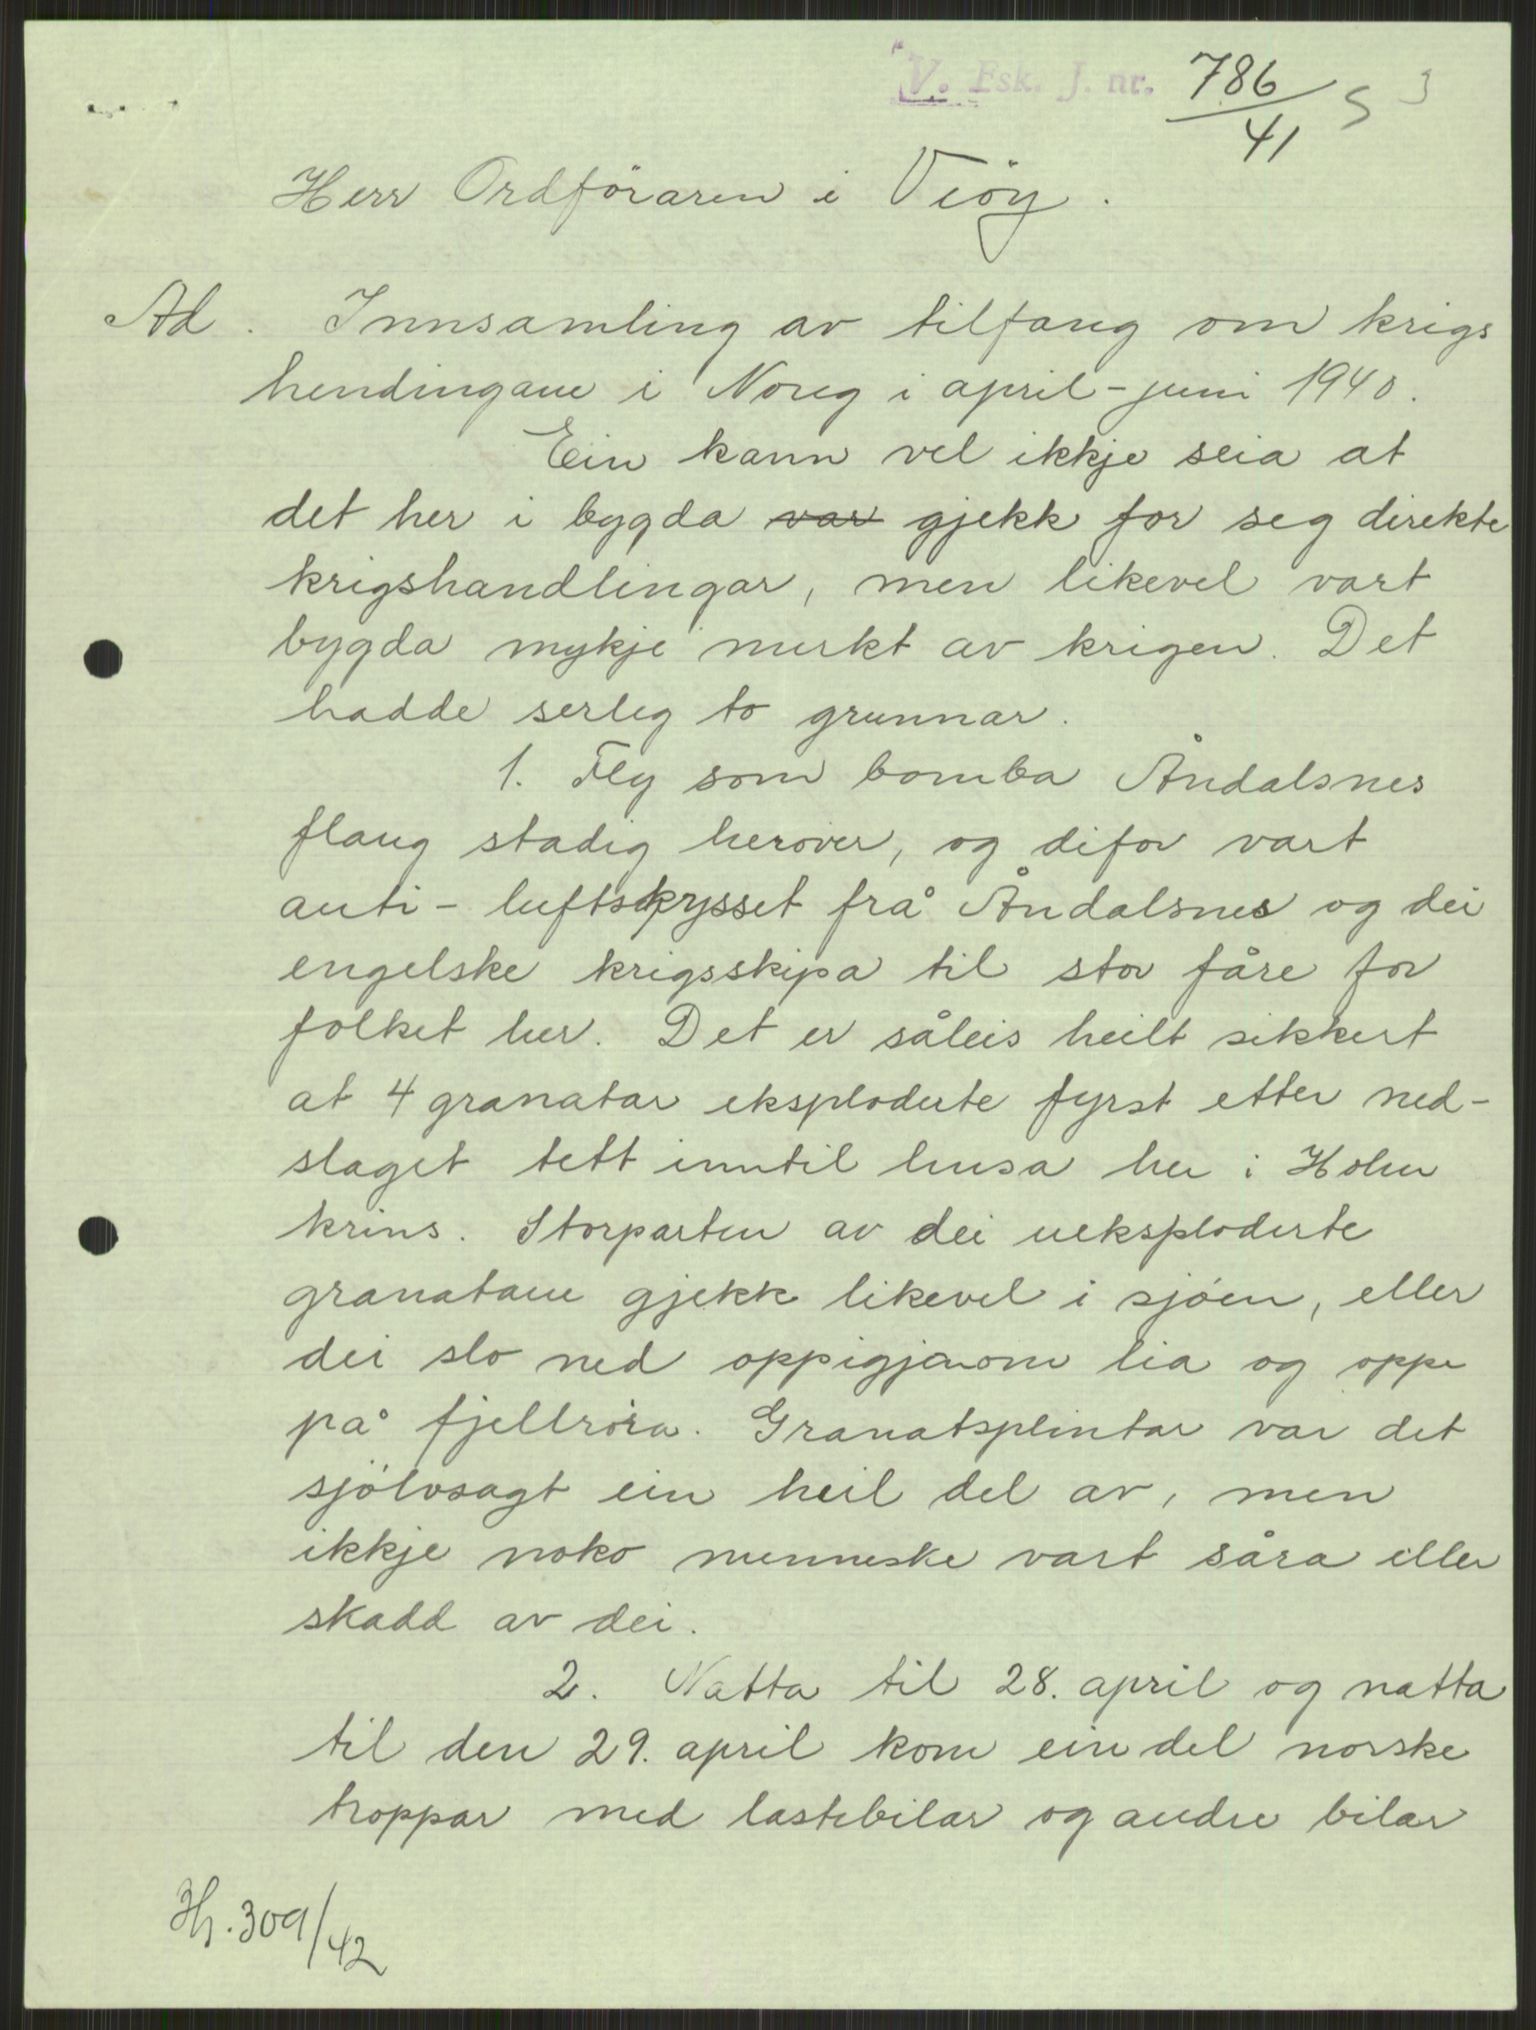 V. Fsk. J. nr. 786/41 S 3
Herr Ordföraren i Veöy.
Ad. Innsamling av tilfang om krigs
hendingane i Noreg i april-juni 1940.
Ein kann vel ikkje seia at
det her i bygda var gjekk for seg direkte
krigshandlingar, men likevel vart
bygda mykje merkt av krigen. Det
hadde serleg to grunnar.
1. Fly som bomba Åndalsnes
flaug stadig herover, og difor vart
anti-luftskysset frå Åndalsnes og dei
engelske krigsskipa til stor fåre for
folket her. Det er såleis heilt sikkert
at 4 granatar eksploderte fyrst etter ned-
slaget tett inntil husa her i Holm
krins. Storparten av dei ueksploderte
granatane gjekk likevel i sjöen, eller
dei slo ned oppigjenom lia og oppe
på fjellröra. Granatsplintar var det
sjölvsagt ein heil del av, men
ikkje noko menneske vart såra eller
skadd av dei.
2. Natta til 28. april og natta
til den 29. april kom ein del norske
troppar med lastebilar og andre bilar
Hj. 309/42